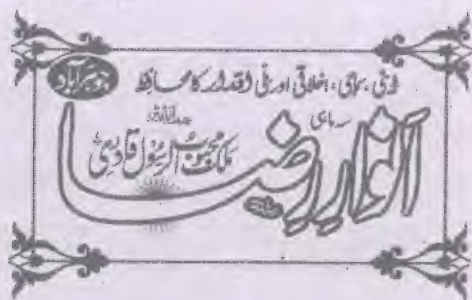 جوہر آباد
دینی، سماجی، اخلاقی اور ملی اقدار کا محافظ
سہ ماہی
انوارِ رضا
ملک محبوب الرسول قادری